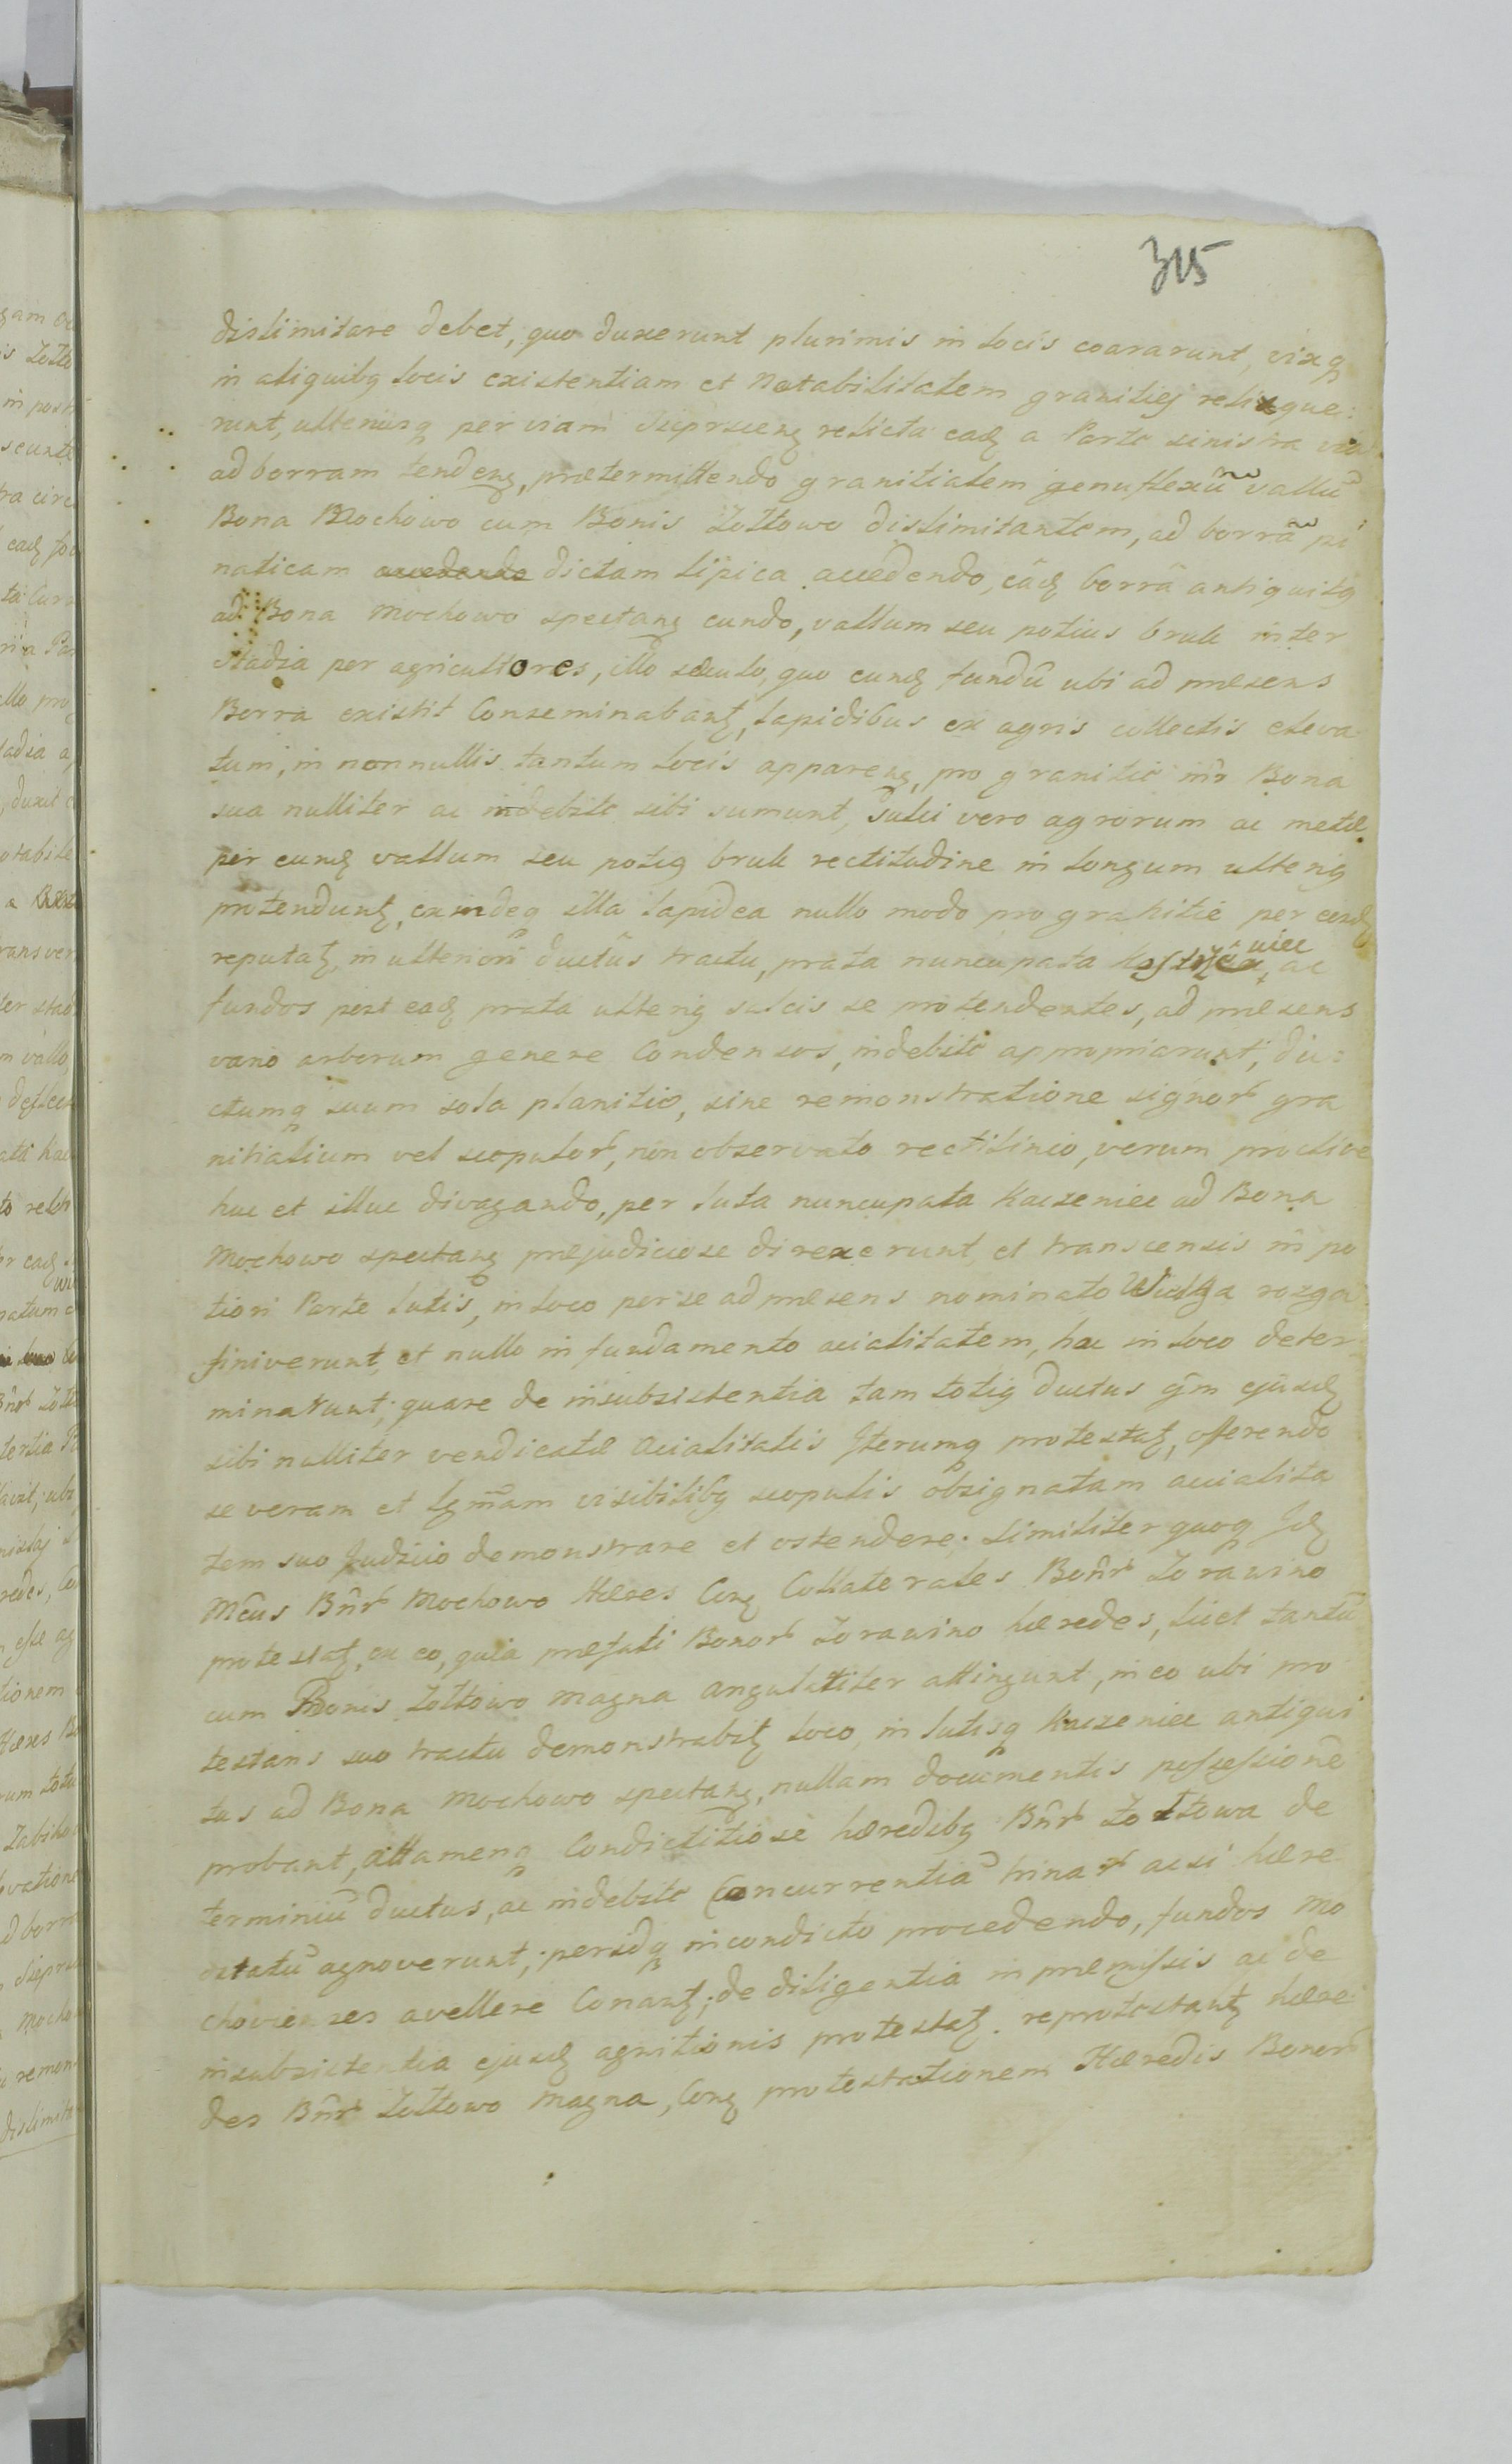 315
dislimitare debet, quo duxerunt plurimis in locis coararunt, vixq
in aliquibq locis existentiam et Notabilitatem granitiej relique:
runt, ulteriusq per viam Sieprscenq relicta eadq a Parte sinistra via
ad borram tendenq, prætermittendo granitialem genuflexũ vallũ
Bona Mochowo cum Bonis Zołtowo dislimitantem, ad borrã pi
naticam dictam lipica accedendo, eãdq borrã antiquitq
ad Bona Mochowo spectanq eundo, vallum seu potius bruk inter
stadia per agricultores, illo sæculo, quo eundq fundũ ubi ad præsens
Borra existit Conseminabantq, lapidibus ex agris collectis eleva
tum, in nonnullis tantum locis apparenq, pro granitie inr Bona
sua nulliter ac indebite sibi sumunt, sulci vero agrorum ac metæ
per eundq vallum seu potiq bruk rectitudine in longum ulteriq
protenduntq, exindeq illa lapidea nullo modo pro granitie per eosdq
reputatq, in ulteriori ductus tractu, prata nuncupata ac
fundos post eadq prata ulteriq sulcis se protendentes, ad præsens
vario arborum genere Condensos, indebite appropriarunt, du:
ctumq suum sola planitie, sine remonstratione signor gra
nitialium vel scopulor, non observato rectilineo, verum proclive
huc et illuc divagando, per luta nuncupata Kaczeniec ad Bona
Mochowo spectanq præjudiciose direxerunt, et transcensis in po
tiori Parte lutis, in loco per se ad præsens nominato Wielga rozga
finiverunt, et nullo in fundamento acialitatem, hac in loco deter
minarunt; quare de insubsistentia tam totiq ductus qm ejusdq
sibi nulliter vendicatæ Acialitatis Iterumq protestatq, offerendo
se veram et lgmam visibilibq scopulis obsignatam acialita
tem suo Judicio demonstrare et ostendere. Similiter quoq Idq
Mcus Bnr Mochowo Hæres Conq Collaterales Bonr Zorawino
protestatq, ex eo, quia præfati Bonor Zorawino hæredes, licet tantũ
cum Bonis Zołtowo magna angulatiter attingunt, in eo ubi pro
testans suo tractu demonstrabitq loco, in lutisq Kaczeniec antiqui
tus ad Bona Mochowo spectanq, nullam documentis possessionẽ
probant, attamenq Condictitiose hæredibq Bnr Zołtowa de
terminiũ ductus, ac indebite Concurrentiã trinar acsi hære
ditatũ agnoverunt; peridq incondicto procedendo, fundos Mo
chovienses avellere Conantq; de diligentia in præmissis ac de
insubsistentia ejusdq agnitionis protestatq. reprotestantq hære
des Bnr Zołtowo Magna, Conq protestationem Hæredis Bonor